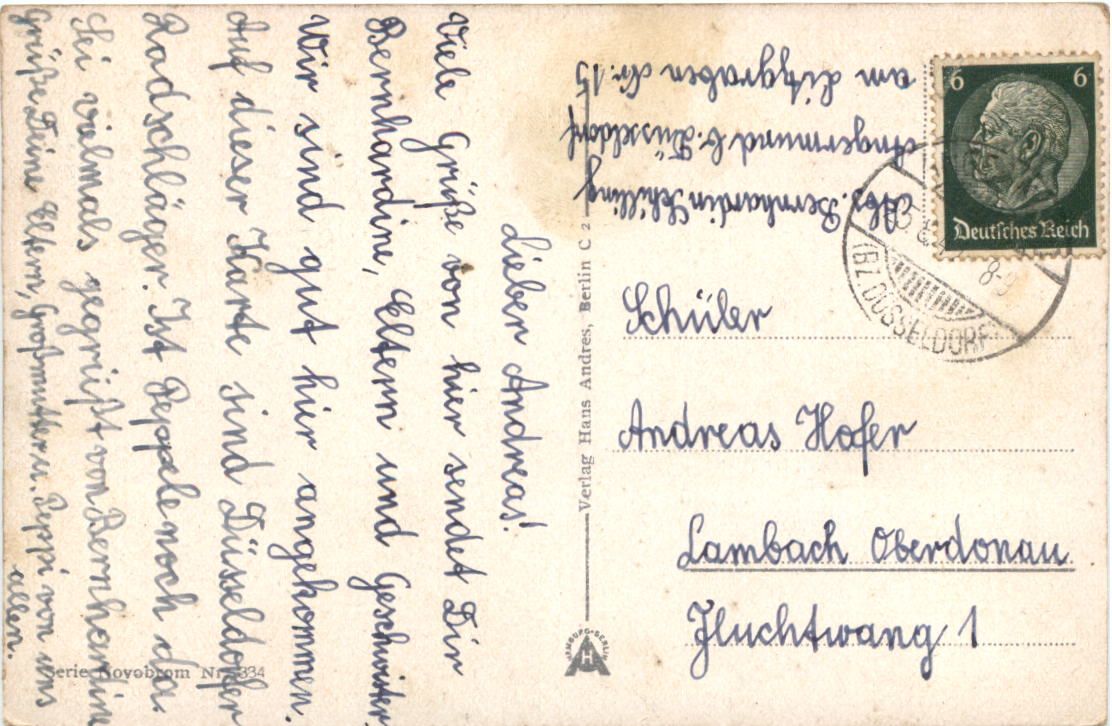 Lieber Andreas!
Viele Grüße von hier sendet Dir
Bernhardine, Eltern und Geschwister.
Wir sind gut hier angekommen.
Auf dieser Karte sind Düsseldorfer
Radschläger. Ist Peppele noch da.
Sei vielmals gegrüßt von Bernhardine
Grüße Deine Eltern, Großmutter u. Peppi von uns
allen.
Serie Novobrom Nr. 334
Verlag Hans Andres, Berlin C 2
HAMBURG-BERLIN
Abs. Bernhardin Schilling
Angermund b. Düsseldorf
am Litzgraben Nr. 15
6 6
Deutsches Reich
DÜSSELDORF
8-9
Schüler
Andreas Hofer
Lambach Oberdonau
Fluchtwang 1